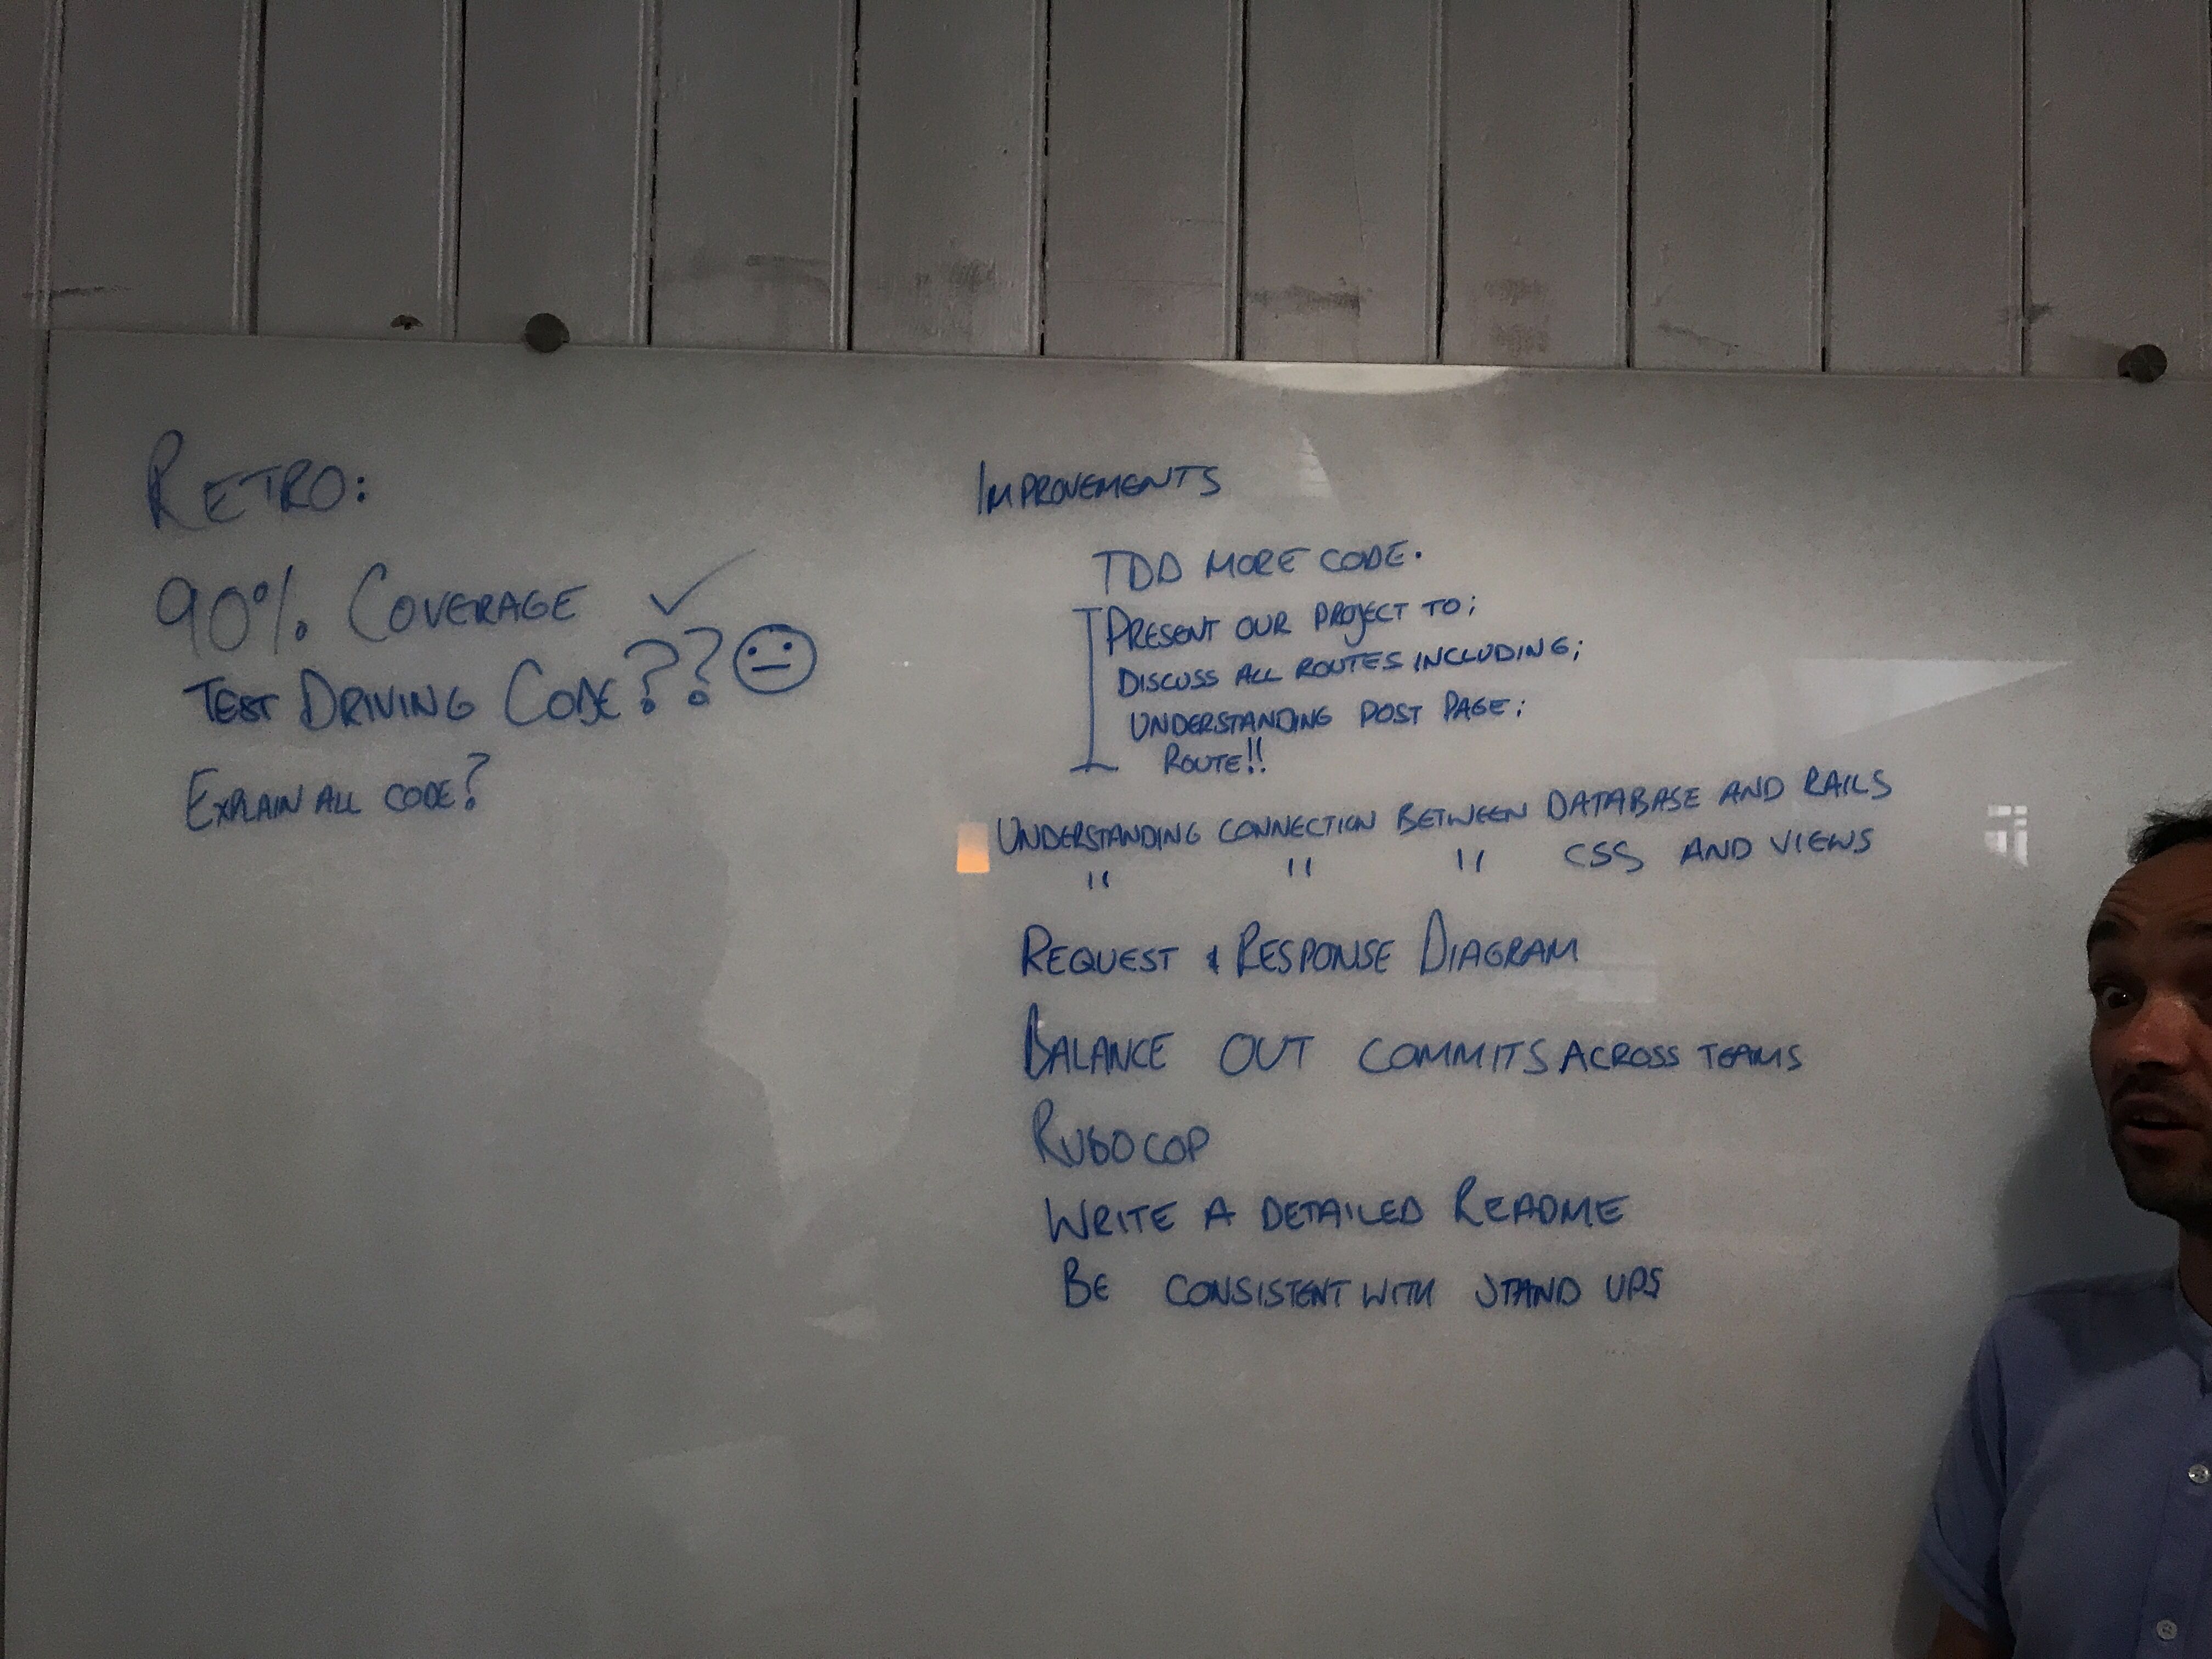 RETRO:
90% COVERAGE ✓
TEST DRIVING CODE??
EXPLAIN ALL CODE?
IMPROVEMENTS
TDD MORE CODE.
PRESENT OUR PROJECT TO;
DISCUSS ALL ROUTES INCLUDING;
UNDERSTANDING POST PAGE;
ROUTE!!
UNDERSTANDING CONNECTION BETWEEN DATABASE AND RAILS
" " " CSS AND VIEWS
REQUEST & RESPONSE DIAGRAM
BALANCE OUT COMMITS ACROSS TEAMS
RUBOCOP
WRITE A DETAILED README
BE CONSISTENT WITH STAND UPS